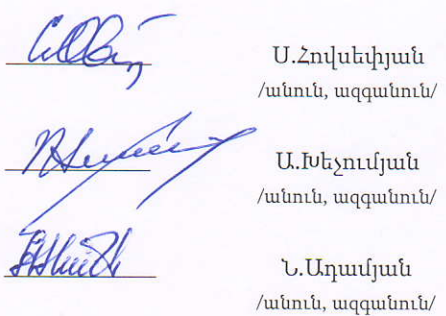 Ս.Հովսեփյան
/անուն, ազգանուն/
Ա.Խեչումյան
/անուն, ազգանուն/
Ն.Ադամյան
/անուն, ազգանուն/